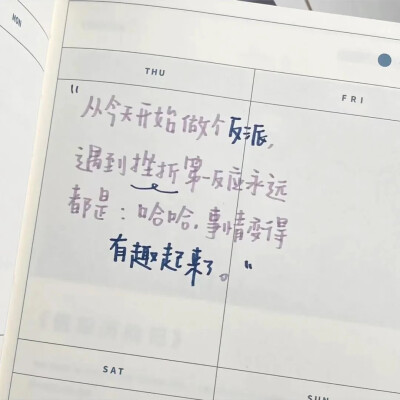 MON
THU
FRI
"从今天开始做个反派,
遇到挫折第一反应永远
都是：哈哈,事情变得
有趣起来了。"
SAT
SUN